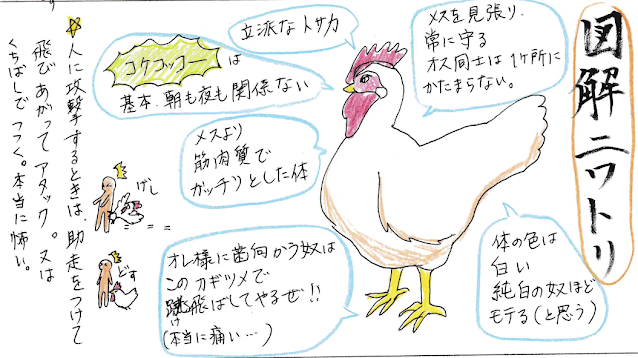 図解ニワトリ
メスを見張り、
常に守る
オス同士は1ケ所に
かたまらない。
立派なトサカ
コケコッコーは
基本、朝も夜も関係ない
メスより
筋肉質で
ガッチリとした体
体の色は
白い
純白の奴ほど
モテる(と思う)
オレ様に歯向かう奴は
このカギツメで
蹴け飛ばしてやるぜ!!
(本当に痛い…)
人に攻撃するときは、助走をつけて
飛びあがってアタック。又は
くちばしでつつく。本当に怖い。
げし
どす